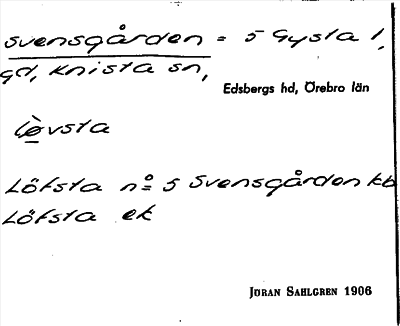 Svensgården = 5 Gysta 1,
gd, Knista sn,
Edsbergs hd, Örebro län
Löfsta nº 5 Svensgården kb
Löfsta ek
JÖRAN SAHLGREN 1906